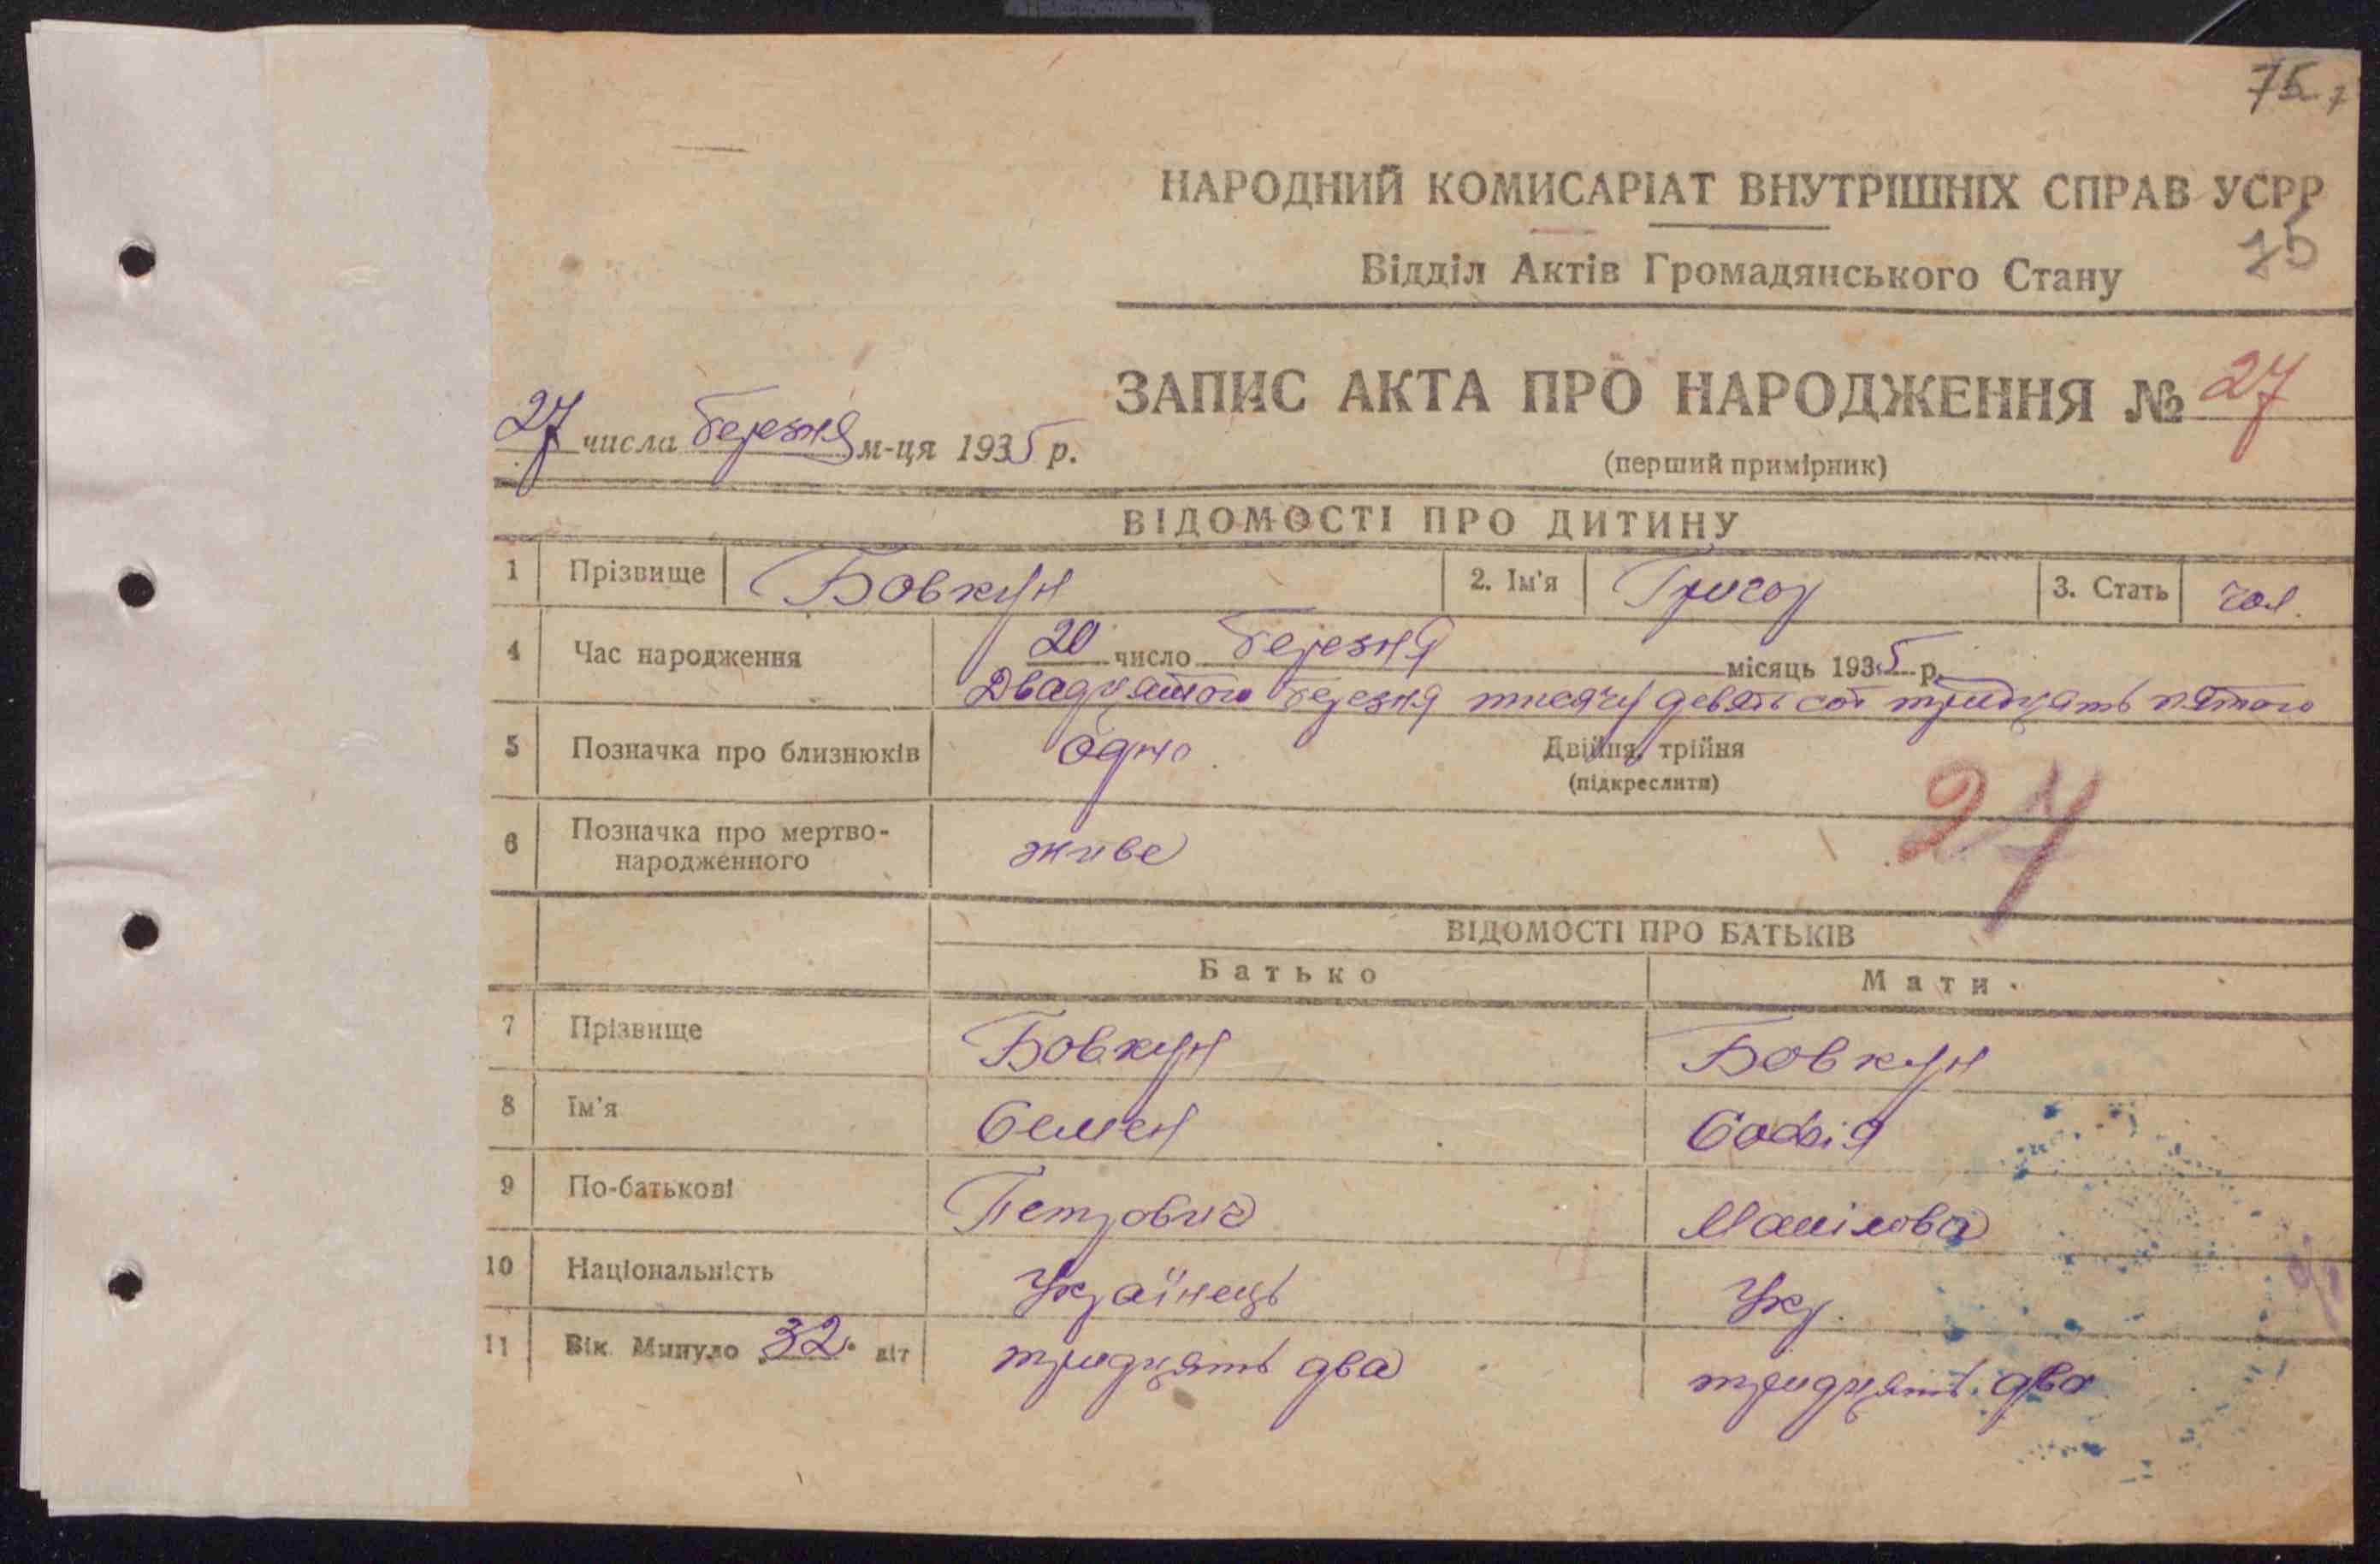 75
НАРОДНИЙ КОМИСАРІАТ ВНУТРІШНІХ СПРАВ УСРР
75
Відділ Актів Громадянського Стану
ЗАПИС АКТА ПРО НАРОДЖЕННЯ № 27
27 числа березня м-ця 1935 р.
(перший примірник)
ВІДОМОСТІ ПРО ДИТИНУ
1 Прізвище Бовкун 2. Ім'я Григор 3. Стать чол.
4 Час народження 20 число березня місяць 1935 р.
Двадцятого березня тисячу девятьсот тридцять пятого
5 Позначка про близнюків одно Двійня, трійня
(підкреслити)
27
6 Позначка про мертво-
народженного живе
ВІДОМОСТІ ПРО БАТЬКІВ
Батько Мати
7 Прізвище Бовкун Бовкун
8 Ім'я Семен Софія
9 По-батькові Петрович
10 Національність Українець Укр.
11 Вік. Минуло 32 літ тридцять два тридцять два